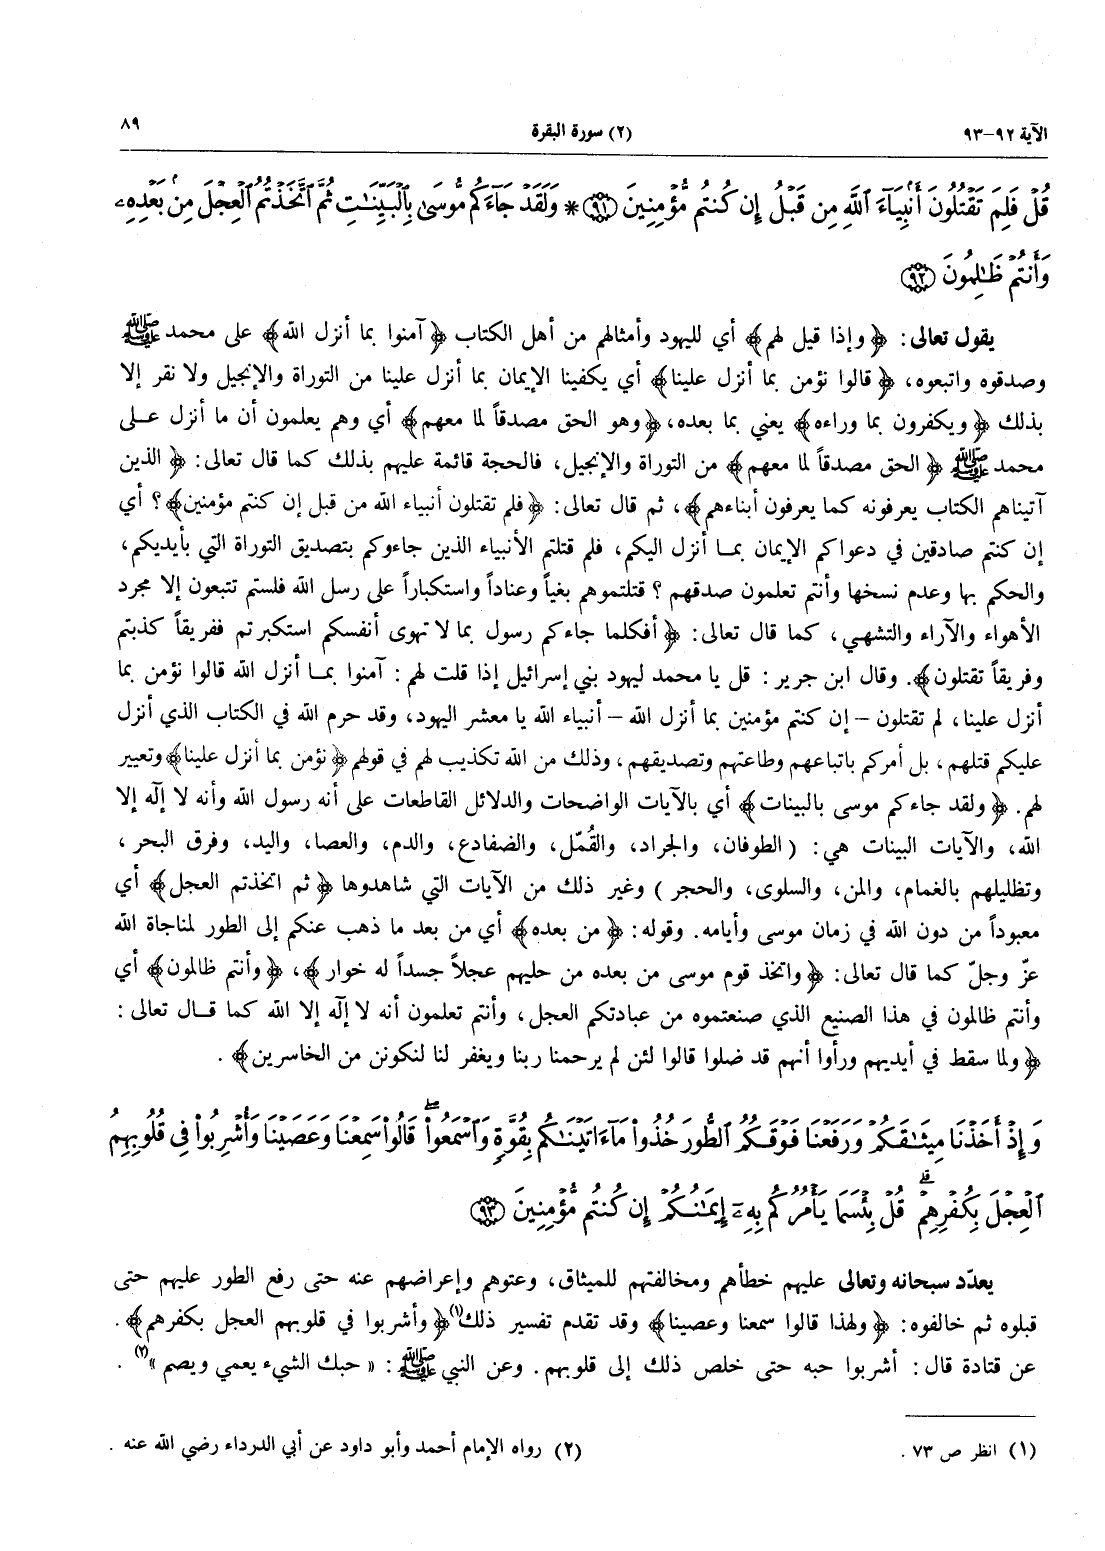 الآية ٩٢-٩٣ (٢) سورة البقرة ٨٩
قُلْ فَلِمَ تَقْتُلُونَ أَنۢبِيَآءَ ٱللَّهِ مِن قَبْلُ إِن كُنتُم مُّؤْمِنِينَ ﴿٩١﴾ * وَلَقَدْ جَآءَكُم مُّوسَىٰ بِٱلْبَيِّنَـٰتِ ثُمَّ ٱتَّخَذْتُمُ ٱلْعِجْلَ مِنۢ بَعْدِهِۦ
وَأَنتُمْ ظَـٰلِمُونَ ﴿٩٢﴾
يقول تعالى: ﴿وإذا قيل لهم﴾ أي لليهود وأمثالهم من أهل الكتاب ﴿آمنوا بما أنزل الله﴾ على محمد ﷺ
وصدقوه واتبعوه، ﴿قالوا نؤمن بما أنزل علينا﴾ أي يكفينا الإيمان بما أنزل علينا من التوراة والإنجيل ولا نقر إلا
بذلك ﴿ويكفرون بما وراءه﴾ يعني بما بعده، ﴿وهو الحق مصدقاً لما معهم﴾ أي وهم يعلمون أن ما أنزل على
محمد ﷺ ﴿الحق مصدقاً لما معهم﴾ من التوراة والإنجيل، فالحجة قائمة عليهم بذلك كما قال تعالى: ﴿الذين
آتيناهم الكتاب يعرفونه كما يعرفون أبناءهم﴾، ثم قال تعالى: ﴿فلم تقتلون أنبياء الله من قبل إن كنتم مؤمنين﴾؟ أي
إن كنتم صادقين في دعواكم الإيمان بما أنزل اليكم، فلم قتلتم الأنبياء الذين جاءوكم بتصديق التوراة التي بأيديكم،
والحكم بها وعدم نسخها وأنتم تعلمون صدقهم ؟ قتلتموهم بغياً وعناداً واستكباراً على رسل الله فلستم تتبعون إلا مجرد
الأهواء والآراء والتشهي، كما قال تعالى: ﴿أفكلما جاءكم رسول بما لا تهوى أنفسكم استكبرتم ففريقاً كذبتم
وفريقاً تقتلون﴾. وقال ابن جرير : قل يا محمد ليهود بني إسرائيل إذا قلت لهم : آمنوا بما أنزل الله قالوا نؤمن بما
أنزل علينا، لم تقتلون – إن كنتم مؤمنين بما أنزل الله – أنبياء الله يا معشر اليهود، وقد حرم الله في الكتاب الذي أنزل
عليكم قتلهم، بل أمركم باتباعهم وطاعتهم وتصديقهم، وذلك من الله تكذيب لهم في قولهم ﴿نؤمن بما أنزل علينا﴾ وتعيير
لهم. ﴿ولقد جاءكم موسى بالبينات﴾ أي بالآيات الواضحات والدلائل القاطعات على أنه رسول الله وأنه لا إلٓه إلا
الله، والآيات البينات هي: (الطوفان، والجراد، والقُمّل، والضفادع، والدم، والعصا، واليد، وفرق البحر ،
وتظليلهم بالغمام، والمن، والسلوى، والحجر ) وغير ذلك من الآيات التي شاهدوها ﴿ثم اتخذتم العجل﴾ أي
معبوداً من دون الله في زمان موسى وأيامه. وقوله: ﴿من بعده﴾ أي من بعد ما ذهب عنكم إلى الطور لمناجاة الله
عزّ وجلّ كما قال تعالى: ﴿واتخذ قوم موسى من بعده من حليهم عجلاً جسداً له خوار﴾، ﴿وأنتم ظالمون﴾ أي
وأنتم ظالمون في هذا الصنيع الذي صنعتموه من عبادتكم العجل، وأنتم تعلمون أنه لا إلٓه إلا الله كما قال تعالى :
﴿ولما سقط في أيديهم ورأوا أنهم قد ضلوا قالوا لئن لم يرحمنا ربنا ويغفر لنا لنكونن من الخاسرين﴾ .
وَإِذْ أَخَذْنَا مِيثَـٰقَكُمْ وَرَفَعْنَا فَوْقَكُمُ ٱلطُّورَ خُذُوا۟ مَآ ءَاتَيْنَـٰكُم بِقُوَّةٍ وَٱسْمَعُوا۟ ۖ قَالُوا۟ سَمِعْنَا وَعَصَيْنَا وَأُشْرِبُوا۟ فِى قُلُوبِهِمُ
ٱلْعِجْلَ بِكُفْرِهِمْ ۚ قُلْ بِئْسَمَا يَأْمُرُكُم بِهِۦٓ إِيمَـٰنُكُمْ إِن كُنتُم مُّؤْمِنِينَ ﴿٩٣﴾
يعدّد سبحانه وتعالى عليهم خطأهم ومخالفتهم للميثاق، وعتوهم وإعراضهم عنه حتى رفع الطور عليهم حتى
قبلوه ثم خالفوه: ﴿ولهذا قالوا سمعنا وعصينا﴾ وقد تقدم تفسير ذلك(١) ﴿وأشربوا في قلوبهم العجل بكفرهم﴾ .
عن قتادة قال: أشربوا حبه حتى خلص ذلك إلى قلوبهم. وعن النبي ﷺ : « حبك الشيء يعمي ويصم »(٢) .
(١) انظر ص ٧٣ . (٢) رواه الإمام أحمد وأبو داود عن أبي الدرداء رضي الله عنه .